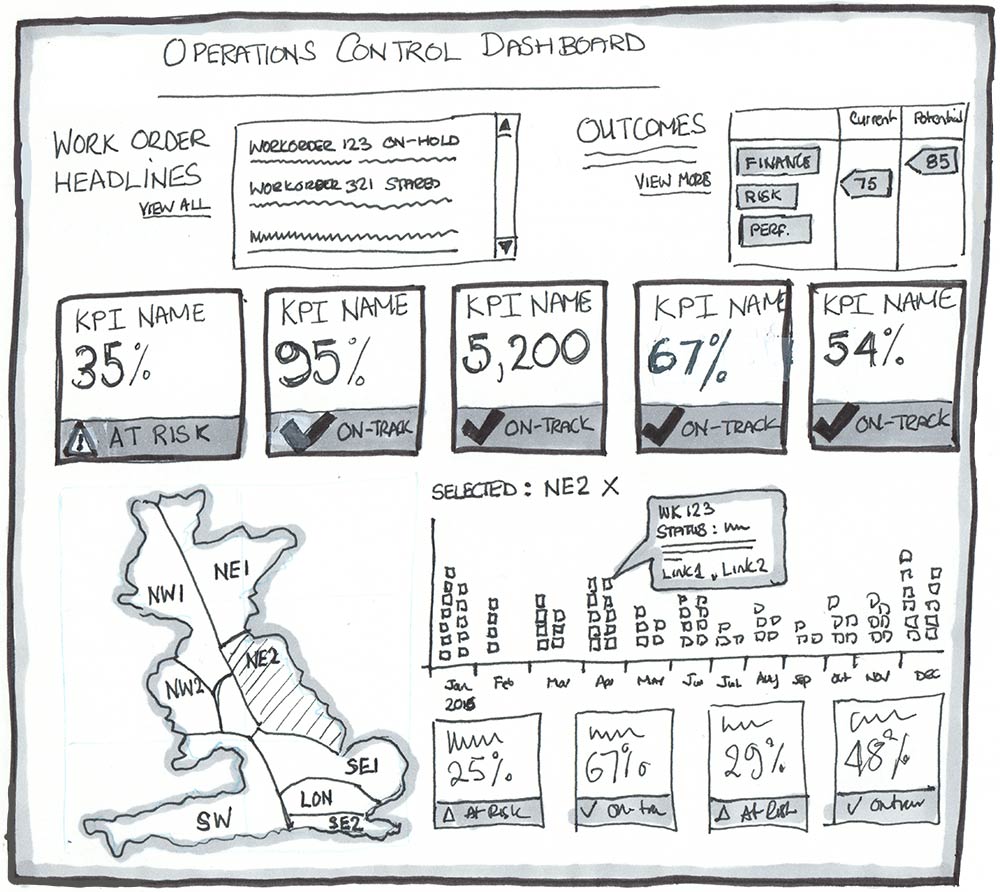 OPERATIONS CONTROL DASHBOARD
WORK ORDER
HEADLINES
VIEW ALL
WORKORDER 123 ON-HOLD
WORKORDER 321 STARED
OUTCOMES
VIEW MORE
Current Potential
FINANCE
RISK
PERF.
75
85
KPI NAME
35%
AT RISK
KPI NAME
95%
ON-TRACK
KPI NAME
5,200
ON-TRACK
KPI NAME
67%
ON-TRACK
KPI NAME
54%
ON-TRACK
NW1
NE1
NE2
NW2
SE1
LON
SW
SE2
SELECTED: NE2 X
WK123
STATUS:
LINK1, LINK2
Jan Feb Mar Apr May Jun Jul Aug Sep Oct Nov Dec
2015
25%
AT RISK
67%
29%
AT RISK
48%